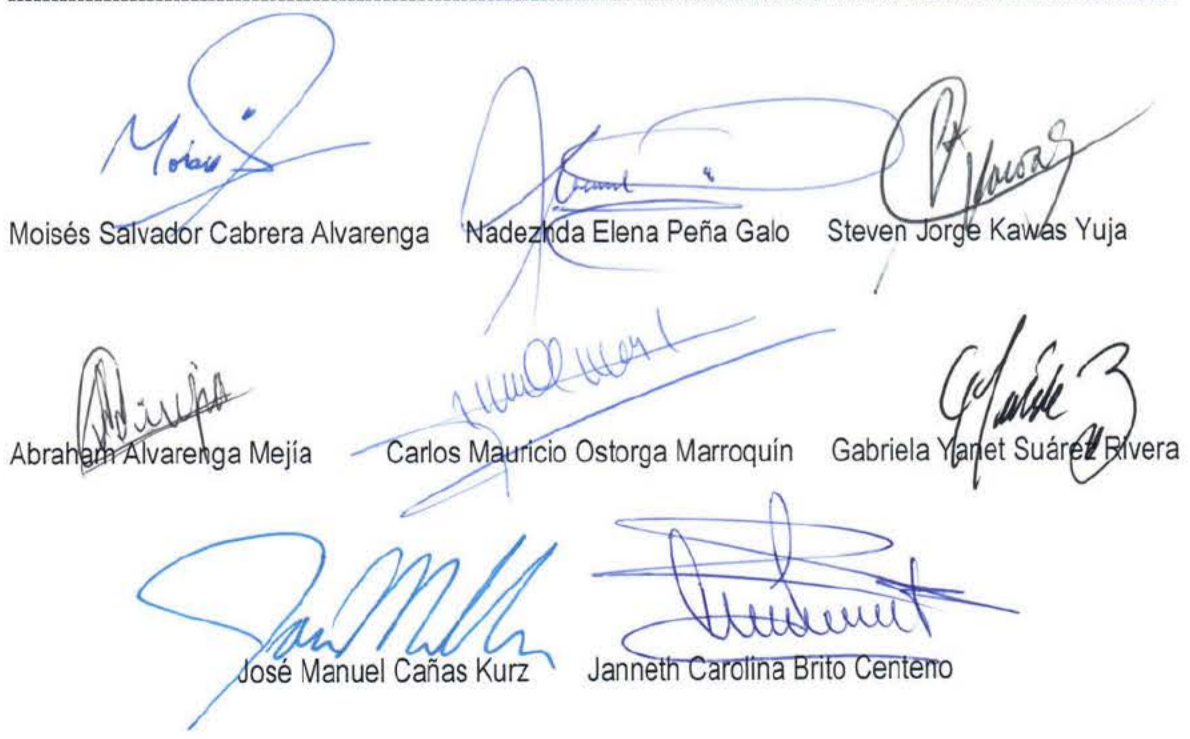 Moisés Salvador Cabrera Alvarenga Nadezhda Elena Peña Galo Steven Jorge Kawas Yuja
Abraham Alvarenga Mejía Carlos Mauricio Ostorga Marroquín Gabriela Yanet Suárez Rivera
José Manuel Cañas Kurz Janneth Carolina Brito Centeno